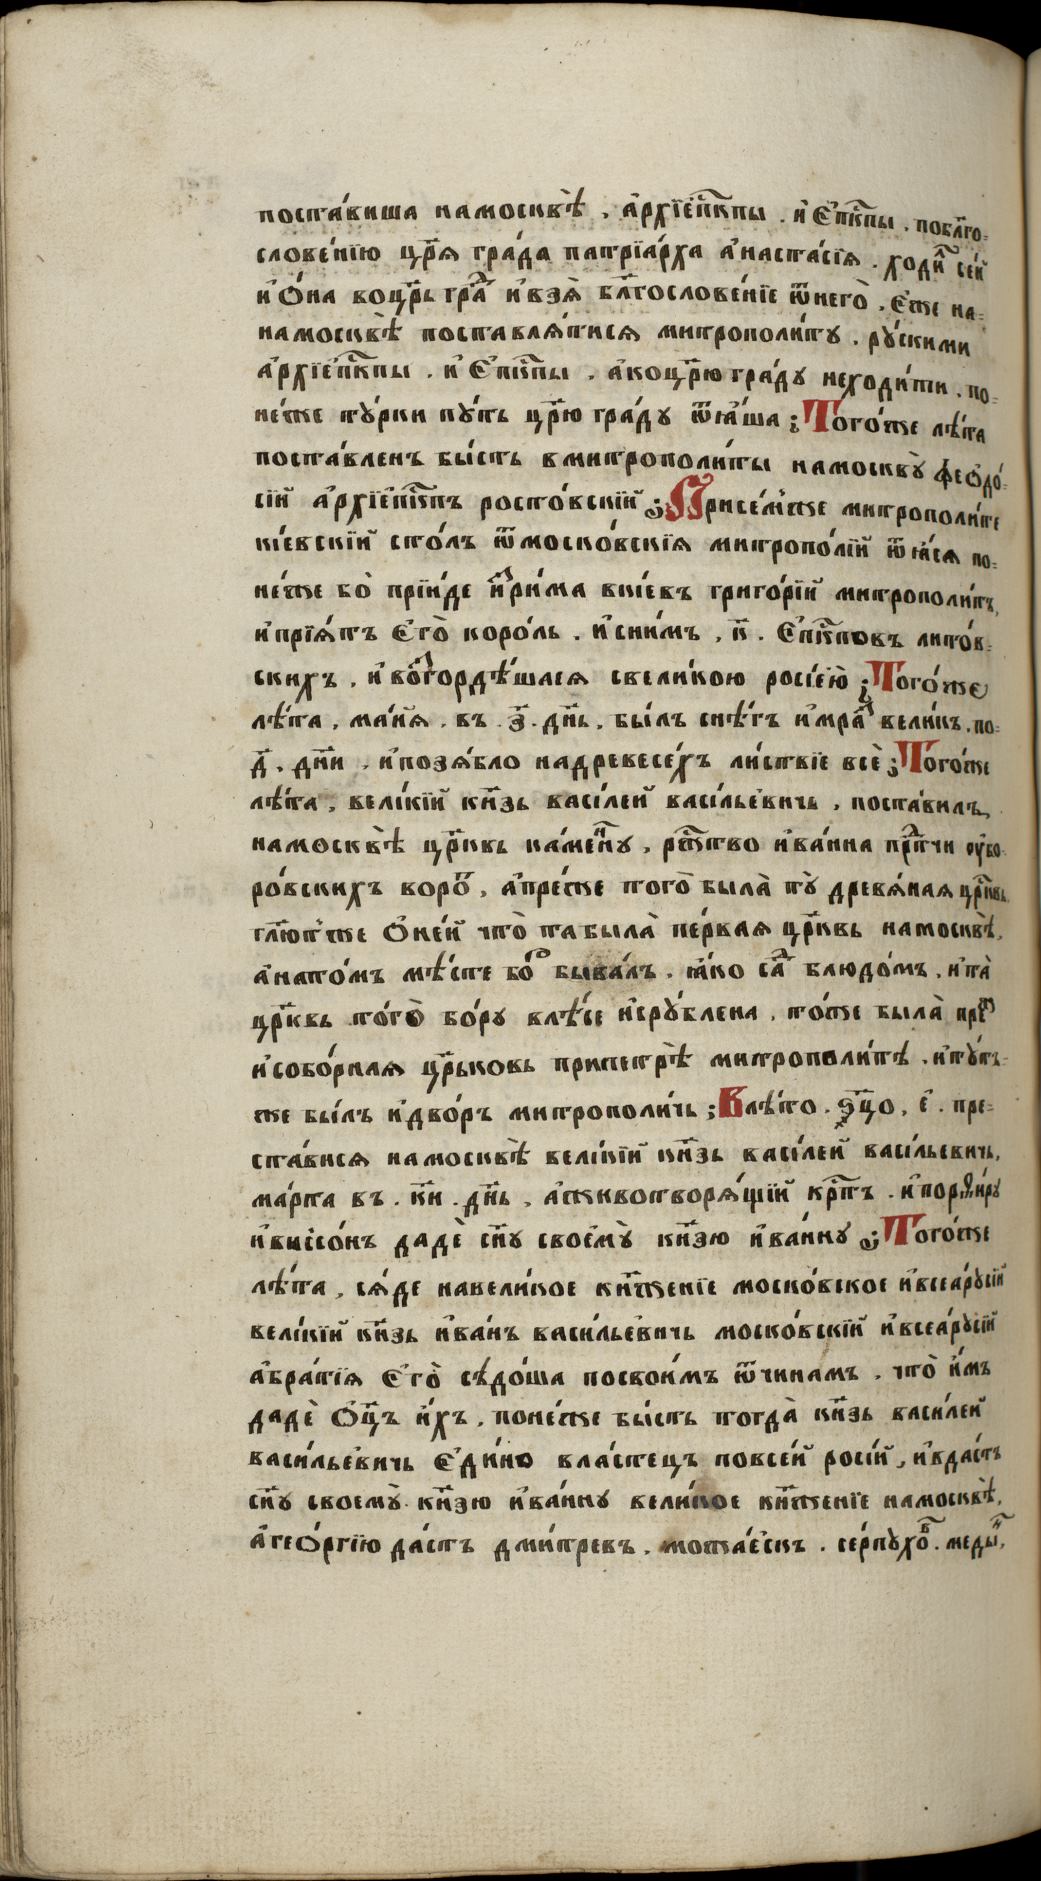 поста́виша намосквѣ̀ , а҆рхїе҆п҃кпы . и҆ є҆п҃кпы , побл҃го=
слове́нїю цр҃я гра́да патрїа́рха а҆наста́сїя . ходи́л се́й
и҆ ѻ҆́на воцр҃ь гра҃д и҆взя̀ бл҃гослове́нїе ѿнего̀ , є҆́же на=
намосквѣ̀ поставля́тися митрополи́ту . ру́скими
а҆рхїе҆п҃кпы . и҆ є҆п҃кпы . а҆коцр҃ю гра́ду неходи́ти . по=
не́же ту́рки пу́ть цр҃ю гра́ду ѿꙗ҆́ша ; Того́же лѣ́та
поста́вленъ бы́сть вмитрополи́ты намоскву̀ феѻдо́=
сїй а҆рхїе҆п҃кпъ росто́вскїй ; Присе́мже митрополи́те
кі́евскїй сто́лъ ѿмоско́вскїя митропо́лїй ѿꙗ҆́ся по=
не́же бо̀ прїи́де и҆з ри́ма вкі́евъ григо́рїй митрополи́тъ,
и҆прїя́тъ є҆го̀ коро́ль . и҆сни́мъ , в҃ . є҆п҃кповъ лито́в=
скихъ , и҆возгордѣ́шася свели́кою росі́ею ; Того́же
лѣ́та , ма́йя . въ . з҃ . дн҃ь , бы́лъ снѣ́гъ и҆мра́з вели́къ . по=
д҃ . дн҃и , и҆позя́бло надревесе́хъ ли́ствїе всѐ ; Того́же
лѣ́та , вели́кїй кн҃зь васі́лей васі́льевичь , поста́вилъ,
намосквѣ̀ цр҃ковь ка́мену , рж҃тво и҆ва́нна пр҃дтчи оу҆бо=
ро́вскихъ воро́т , а҆пре́же того̀ была̀ ту̀ древя́ная цр҃ковь,
гл҃ютже ѻ҆не́й что̀ та была̀ пе́рвая цр҃ковь намосквѣ̀,
а҆натомъ мѣ́сте бо́р бывалъ . ꙗ҆́ко са́м блюдо́мъ , и҆та̀
цр҃ковь того̀ бо́ру влѣ́се и҆сру́блена , то́же была̀ пре́ж
и҆собо́рная цр҃ьковь припетрѣ̀ митрополи́тѣ . и҆ту́тъ=
же бы́лъ и҆дво́ръ митрополи́чь ; Влѣ́то . ѕ҃цо , е҃ . пре=
ста́вися намосквѣ̀ вели́кїй кн҃зь васі́лей васі́льевичь,
ма́рта въ . к҃и . дн҃ь , а҆животворя́щїй кр҃тъ . и҆порѳи́ру
и҆виссо́нъ дадѐ сн҃у своему̀ кн҃зю и҆ва́нну ; Того́же
лѣ́та , ся́де навели́кое кн҃женїе моско́вское и҆всеа́русїй
вели́кїй кн҃зь и҆ва́нъ васи́льевичь моско́вскїй и҆всеа́русїй
а҆бра́тїя є҆го̀ сѣдо́ша посвои́мъ ѿчинамъ , что̀ и҆́мъ
дадѐ ѻ҆ц҃ъ и҆́хъ , поне́же бы́сть тогда̀ кн҃зь васи́лей
васи́льевичь є҆ди́но вла́стецъ повсе́й росі́й , и҆вда́сть
сн҃у своему̀ кн҃зю и҆ва́нну вели́кое кн҃женїе намосквѣ̀,
а҆геѻ҆́ргїю да́сть дми́тревъ , можа́ескъ . се́рпухов . меды́н,